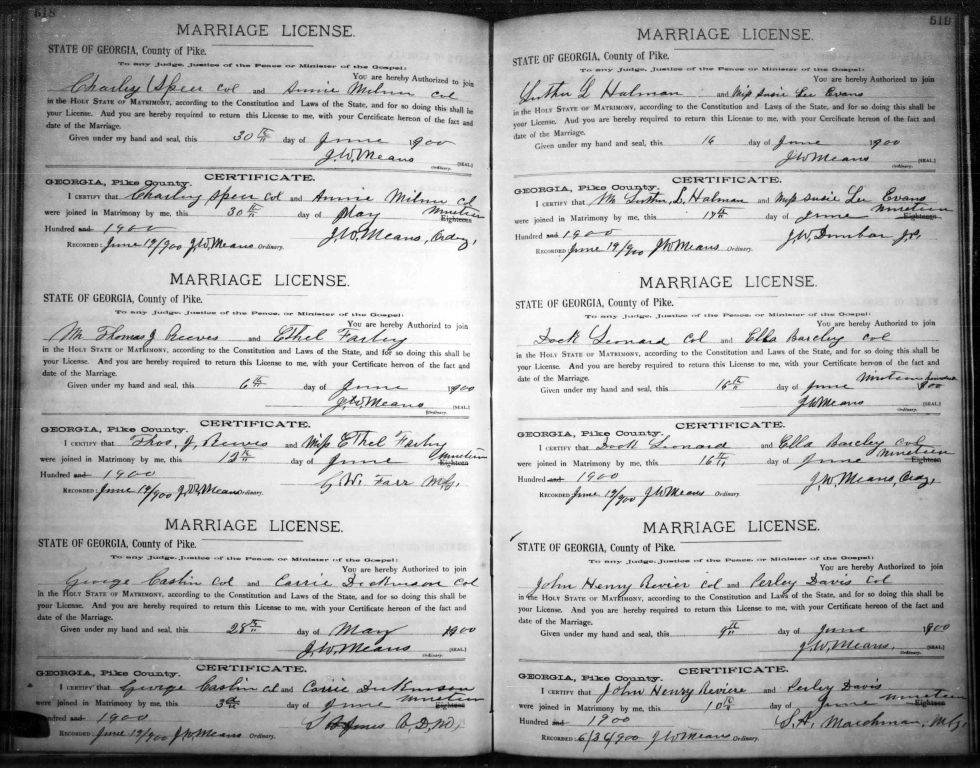 518
MARRIAGE LICENSE.
STATE OF GEORGIA, County of Pike.
To any Judge, Justice of the Peace or Minister of the Gospel:
You are hereby Authorized to join
Charley Speer Col and Annie Milner Col
in the Holy State of Matrimony, according to the Constitution and Laws of the State, and for so doing this shall be
your License. And you are hereby required to return this License to me, with your Certificate hereon of the fact and
date of the Marriage.
Given under my hand and seal, this 30th day of June 1900
J.W. Means [SEAL.]
Ordinary.
CERTIFICATE.
GEORGIA, Pike County.
I certify that Charley Speer Col and Annie Milner Col
were joined in Matrimony by me, this 30th day of May Nineteen
Hundred and 1900 J.W. Means, Ordy,
Recorded: June 19/900 J.W. Means Ordinary.
MARRIAGE LICENSE.
STATE OF GEORGIA, County of Pike.
To any Judge, Justice of the Peace, or Minister of the Gospel:
You are hereby Authorized to join
Mr Thomas J Reeves and Ethel Farley
in the Holy State of Matrimony, according to the Constitution and Laws of the State, and for so doing this shall be
your License. And you are hereby required to return this License to me, with your Certificate hereon of the fact and
date of the Marriage.
Given under my hand and seal, this 6th day of June 1900
J.W. Means [SEAL.]
Ordinary.
CERTIFICATE.
GEORGIA, Pike County.
I certify that Thos. J. Reeves and Miss Ethel Farley
were joined in Matrimony by me, this 12th day of June Nineteen Eighteen
Hundred and 1900 Farr M.G.
Recorded: June 19/900 J.W. Means Ordinary.
MARRIAGE LICENSE.
STATE OF GEORGIA, County of Pike.
To any Judge, Justice of the Peace, or Minister of the Gospel:
You are hereby Authorized to join
George Caslin Col and Carrie Dickinson Col
in the Holy State of Matrimony, according to the Constitution and Laws of the State, and for so doing this shall be
your License. And you are hereby required to return this License to me, with your Certificate hereon of the fact and
date of the Marriage.
Given under my hand and seal, this 28th day of May 1900
J.W. Means [SEAL.]
Ordinary.
CERTIFICATE.
GEORGIA, Pike County.
I certify that George Caslin Col and Carrie Dickinson
were joined in Matrimony by me, this 3rd day of June Nineteen Eighteen
Hundred and 1900 Jones
Recorded: June 19/900 J.W. Means Ordinary.
519
MARRIAGE LICENSE.
STATE OF GEORGIA, County of Pike.
To any Judge, Justice of the Peace or Minister of the Gospel:
You are hereby Authorized to join
Luther L Holman and Miss Susie Lee Evans
in the Holy State of Matrimony, according to the Constitution and Laws of the State, and for so doing this shall be
your License. And you are hereby required to return this License to me, with your Certificate hereon of the fact and
date of the Marriage.
Given under my hand and seal, this 16 day of June 1900
J.W. Means [SEAL.]
Ordinary.
CERTIFICATE.
GEORGIA, Pike County.
I certify that Mr Luther L. Holman and Miss Susie Lee Evans
were joined in Matrimony by me, this 17th day of June Nineteen Eighteen
Hundred and 1900 J.W. Dunbar J.P.
Recorded: June 19/900 J.W. Means Ordinary.
MARRIAGE LICENSE.
STATE OF GEORGIA, County of Pike.
To any Judge, Justice of the Peace, or Minister of the Gospel:
You are hereby Authorized to join
Dock Leonard Col and Ella Barcley Col
in the Holy State of Matrimony, according to the Constitution and Laws of the State, and for so doing this shall be
your License. And you are hereby required to return this License to me, with your Certificate hereon of the fact and
date of the Marriage.
Given under my hand and seal, this day of June Nineteen hundred 1900
J.W. Means [SEAL.]
Ordinary.
CERTIFICATE.
GEORGIA, Pike County.
I certify that Dock Leonard and Ella Barcley Col
were joined in Matrimony by me, this 16th day of June Nineteen Eighteen
Hundred and 1900 J.W. Means, Ordy,
Recorded: June 19/900 J.W. Means Ordinary.
MARRIAGE LICENSE.
STATE OF GEORGIA, County of Pike.
To any Judge, Justice of the Peace, or Minister of the Gospel:
You are hereby Authorized to join
John Henry Revier Col and Perley Davis Col
in the Holy State of Matrimony, according to the Constitution and Laws of the State, and for so doing this shall be
your License. And you are hereby required to return this License to me, with your Certificate hereon of the fact and
date of the Marriage.
Given under my hand and seal, this 9th day of June 1900
J.W. Means, [SEAL.]
Ordinary.
CERTIFICATE.
GEORGIA, Pike County.
I certify that John Henry Reviere and Perley Davis
were joined in Matrimony by me, this 10th day of June Nineteen Eighteen
Hundred and 1900 S.A. Marchman, M.G.
Recorded: J.W. Means Ordinary.